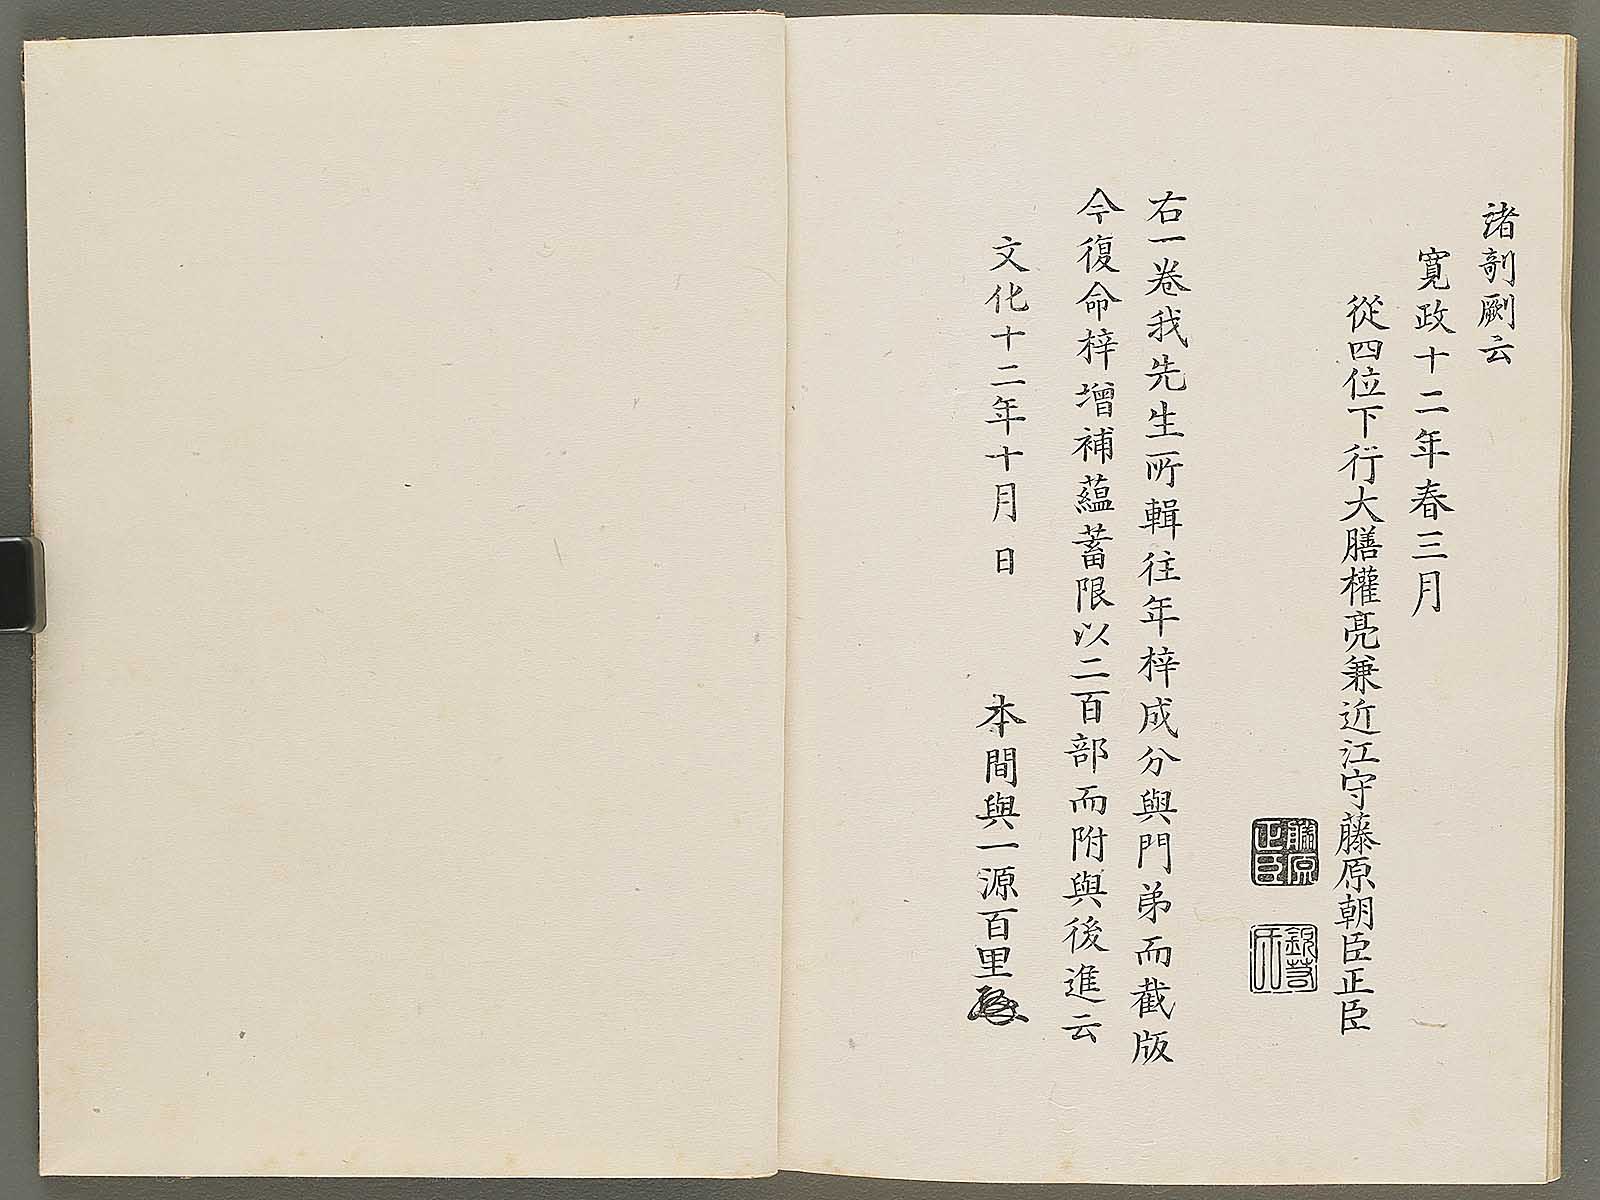 諸剞劂云
寬政十二年春三月
從四位下行大膳權亮兼近江守藤原朝臣正臣
藤原正臣
右一卷我先生所輯往年梓成分與門弟而截版
今復命梓增補蘊蓄限以二百部而附與後進云
文化十二年十月 日
本間與一源百里